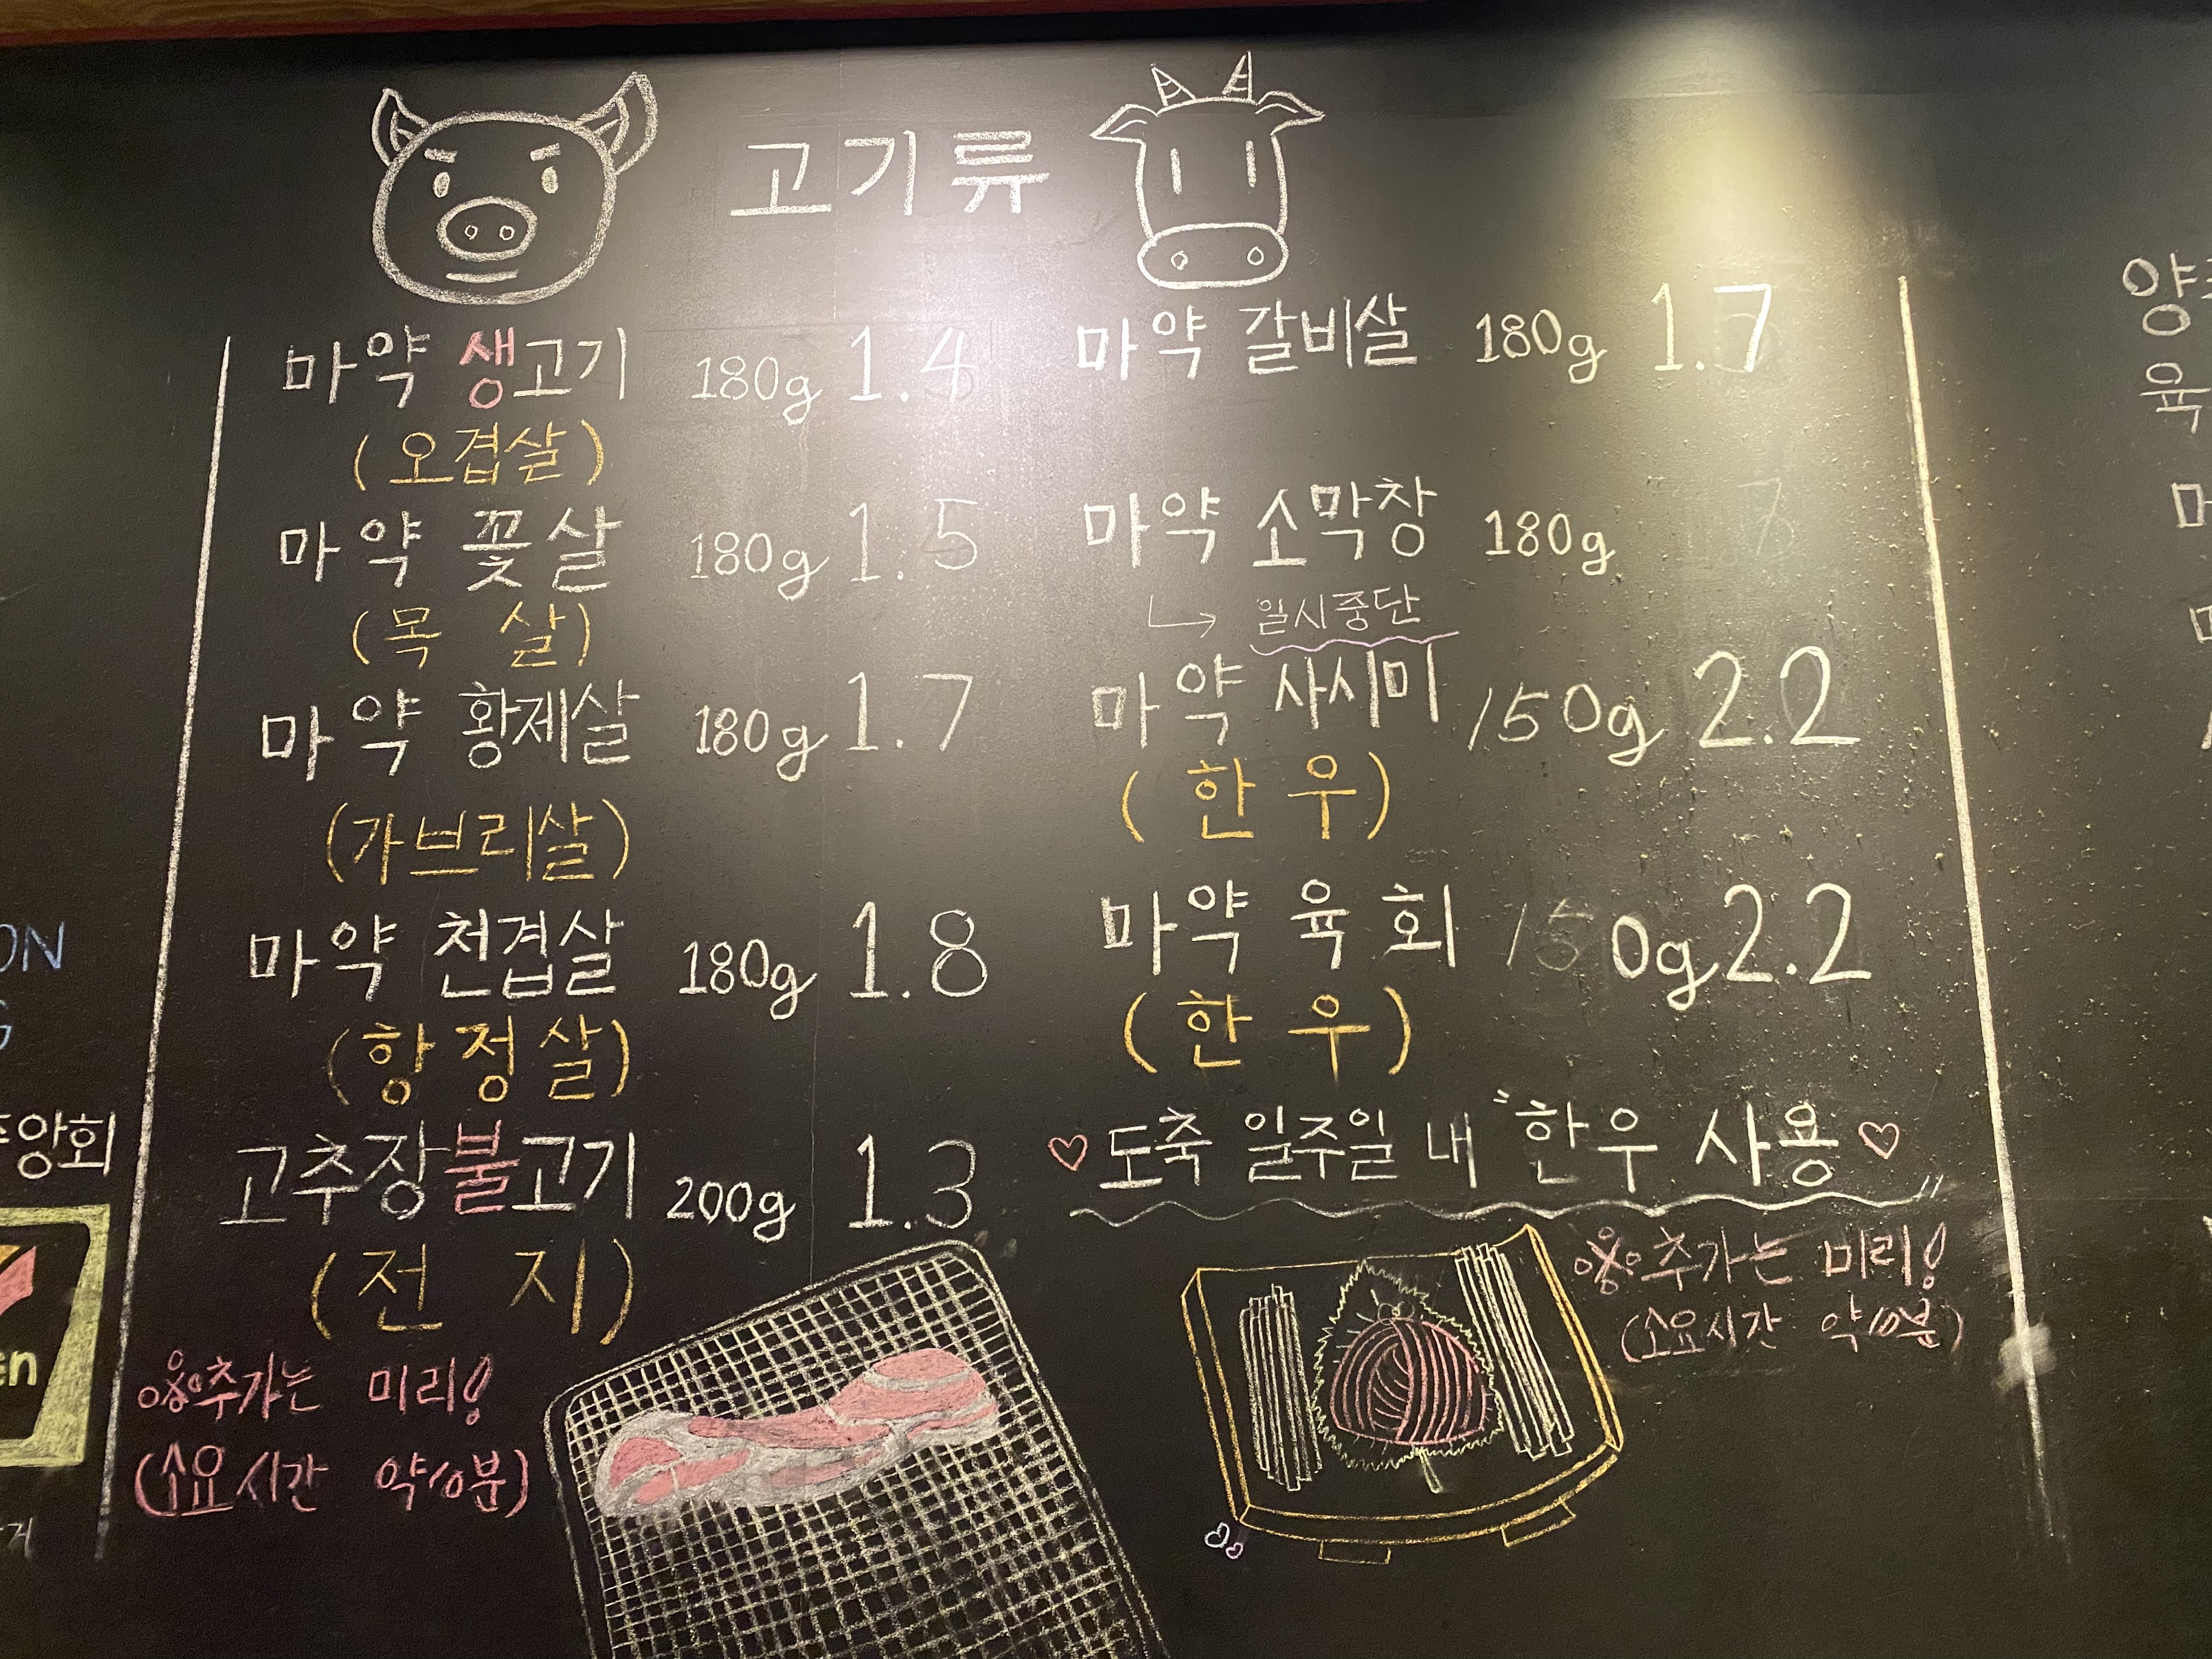 고기류
마약 생고기 180g 1.4
(오겹살)
마약 꽃살 180g 1.5
(목 살)
마약 황제살 180g 1.7
(가브리살)
마약 천겹살 180g 1.8
(항정살)
고추장불고기 200g 1.3
(전 지)
※추가는 미리!
(소요시간 약10분)
마약 갈비살 180g 1.7
마약 소막창 180g
↳ 일시중단
마약 사시미 150g 2.2
(한 우)
마약 육회 150g 2.2
(한 우)
♡도축 일주일 내 "한우 사용♡"
※추가는 미리!
(소요시간 약10분)
ON
앙회
en
양
육